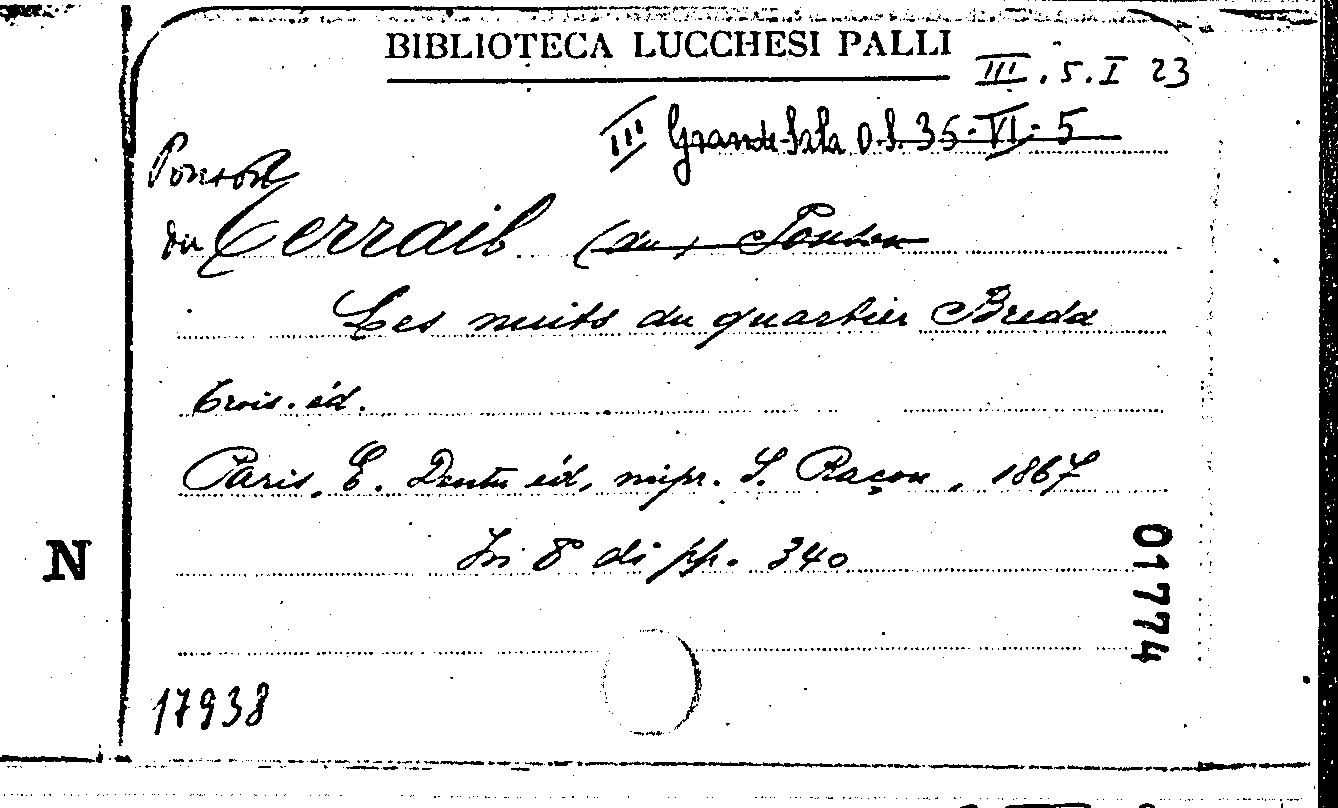 BIBLIOTECA LUCCHESI PALLI
III. 5. I 23
III Grande Sala O.S. 35-VI-5
Ponson
du Terrail (du) Ponson
Les nuits du quartier Breda
trois. éd.
Paris, E. Dentu éd, impr. S. Raçon, 1867
In 8° di pp. 340
N
01774
17938